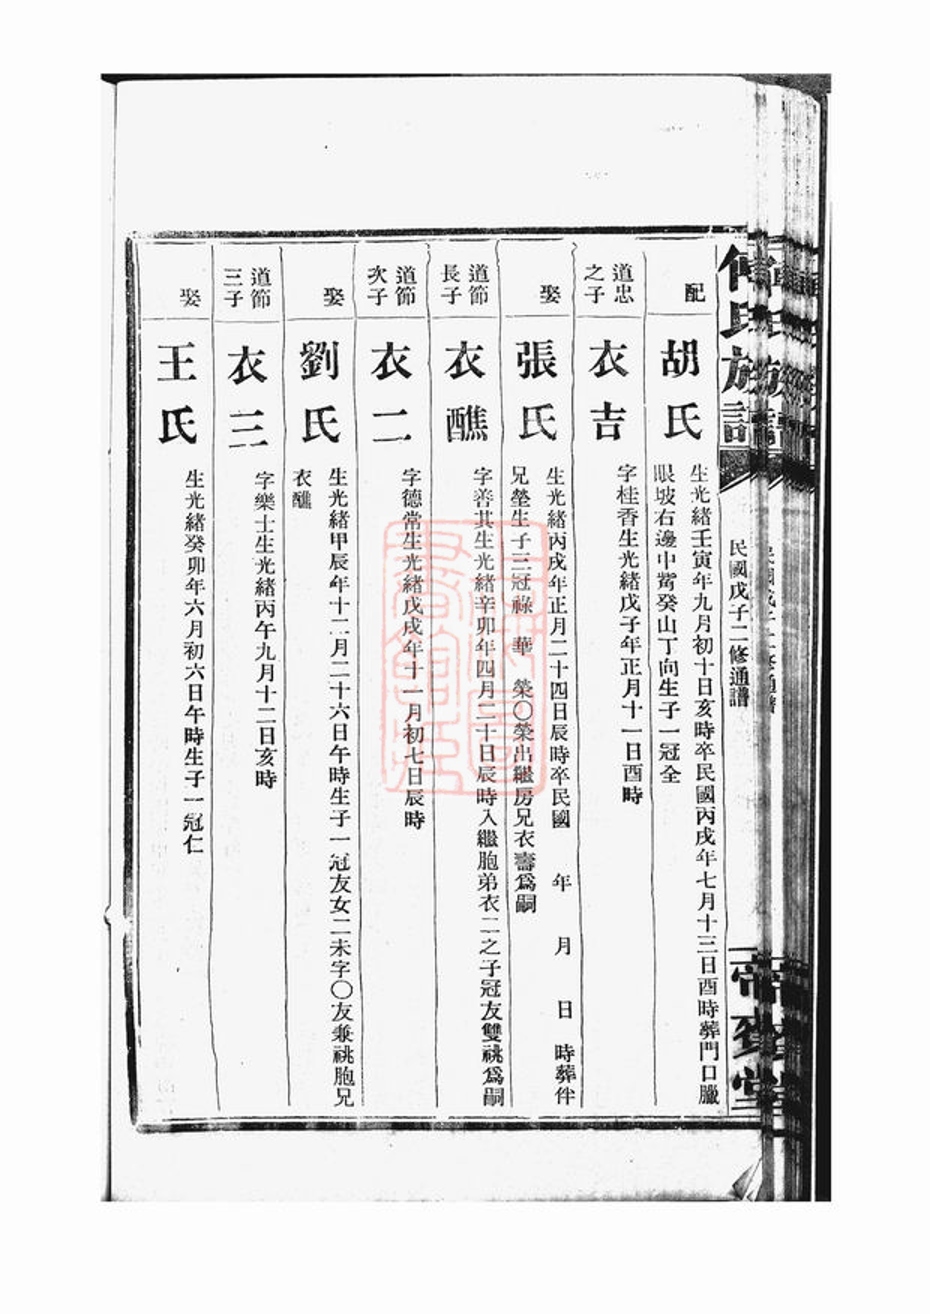 民國戊子二修通譜
配
胡氏
生光緒壬寅年九月初十日亥時卒民國丙戌年七月十三日酉時葬門口臘
眼坡右邊中觜癸山丁向生子一冠全
道忠
之子
衣吉
字桂香生光緒戊子年正月十一日酉時
娶
張氏
生光緒丙戌年正月二十四日辰時卒民國 年 月 日 時葬伴
兄塋生子三冠祿 華 榮〇榮出繼房兄衣壽爲嗣
道節
長子
衣醮
字善其生光緒辛卯年四月二十日辰時入繼胞弟衣二之子冠友雙祧爲嗣
道節
次子
衣二
字德常生光緒戊戌年十一月初七日辰時
娶
劉氏
生光緒甲辰年十二月二十六日午時生子一冠友女二未字〇友兼祧胞兄
衣醮
道節
三子
衣三
字樂士生光緒丙午九月十二日亥時
娶
王氏
生光緒癸卯年六月初六日午時生子一冠仁